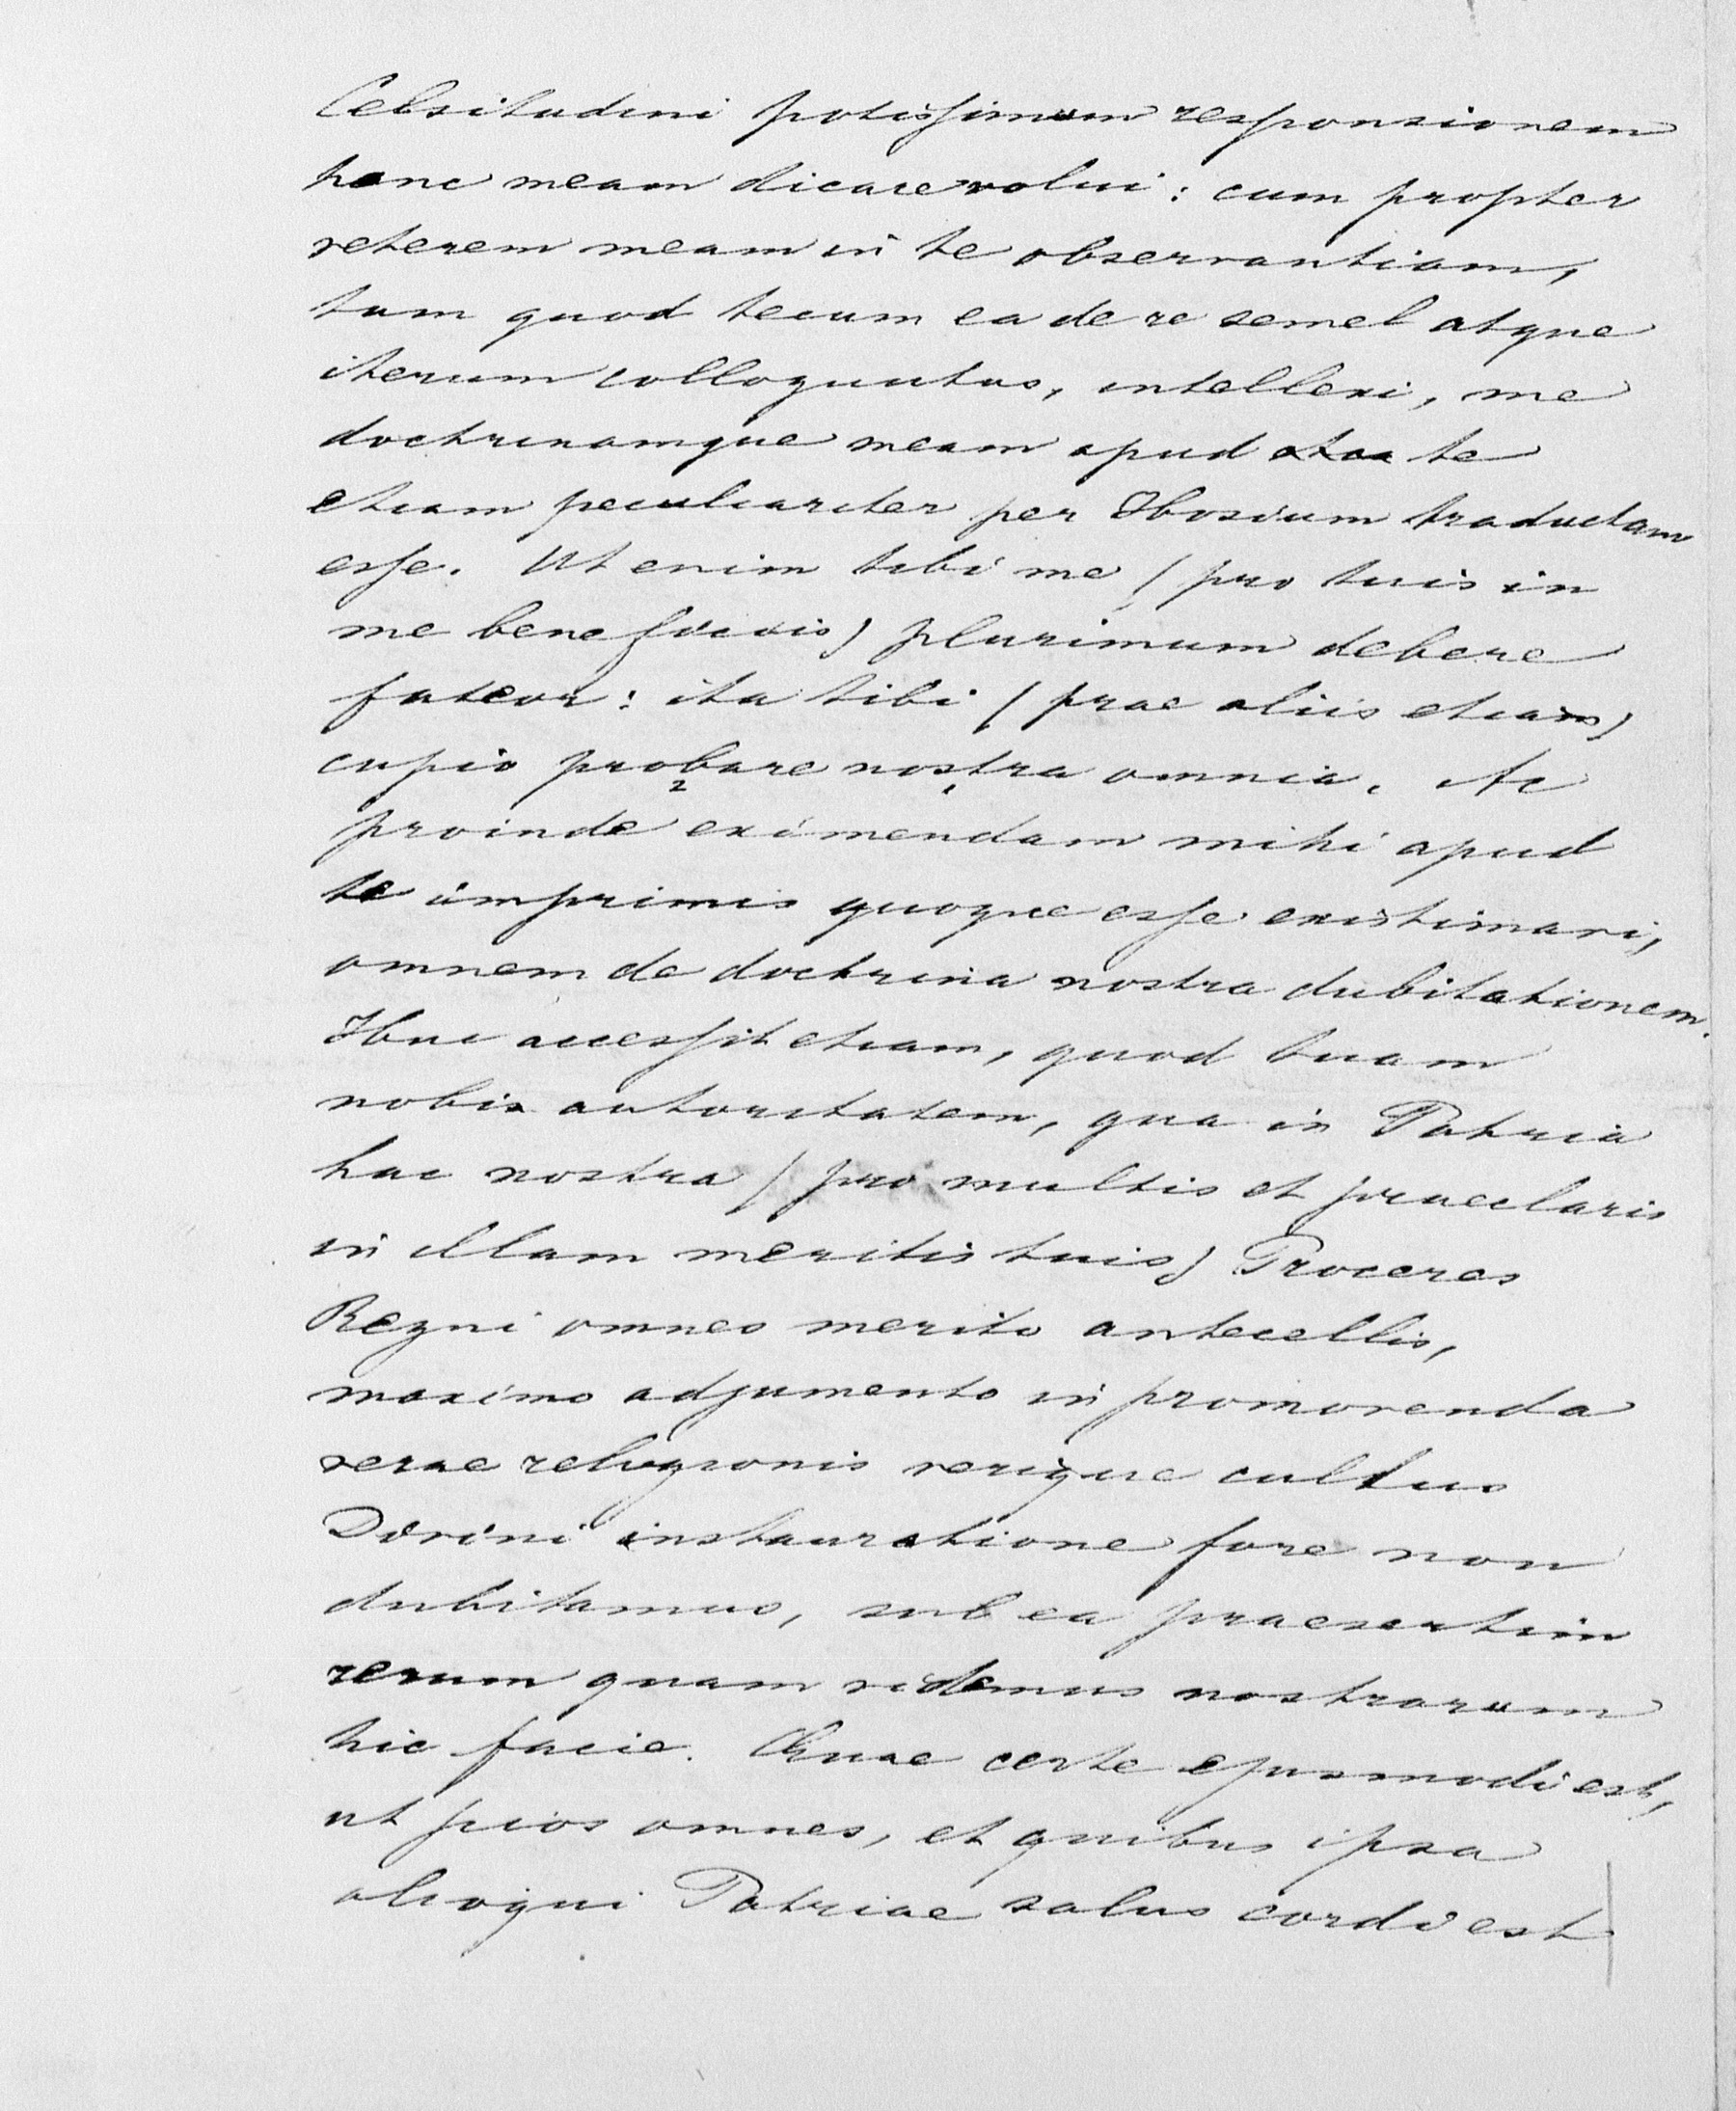 Celsitudini potissimum responsionem
hanc meam dicare volui: cum propter
veterem meam in te observantiam,
tum quod tecum ea de re semel atque
iterum colloquutus, intellexi, me
doctrinamque meam apud te
etiam peculiariter per Hosium traductam
esse. Ut enim tibi me (pro tuis in
me beneficiis) plurimum debere
fateor: ita tibi (prae aliis etiam)
cupio probare nostra omnia. Ac
proinde eximendam mihi apud
te imprimis quoque esse existimavi,
omnem de doctrina nostra dubitationem.
Huc accessit etiam, quod tuam
nobis autoritatem, qua in Patria
hac nostra (pro multis et praeclaris
in illam meritis tuis) Proceres
Regni omnes merito antecellis,
maximo adjumento in promovenda
verae religionis verique cultus
Divini instauratione fore non
dubitamus, sub ea praesertim
rerum quam videmus nostrarum
hic facie. Quae certe ejusmodi est,
ut pios omnes, et quibus ipsa
alioqui Patriae salus cordi est